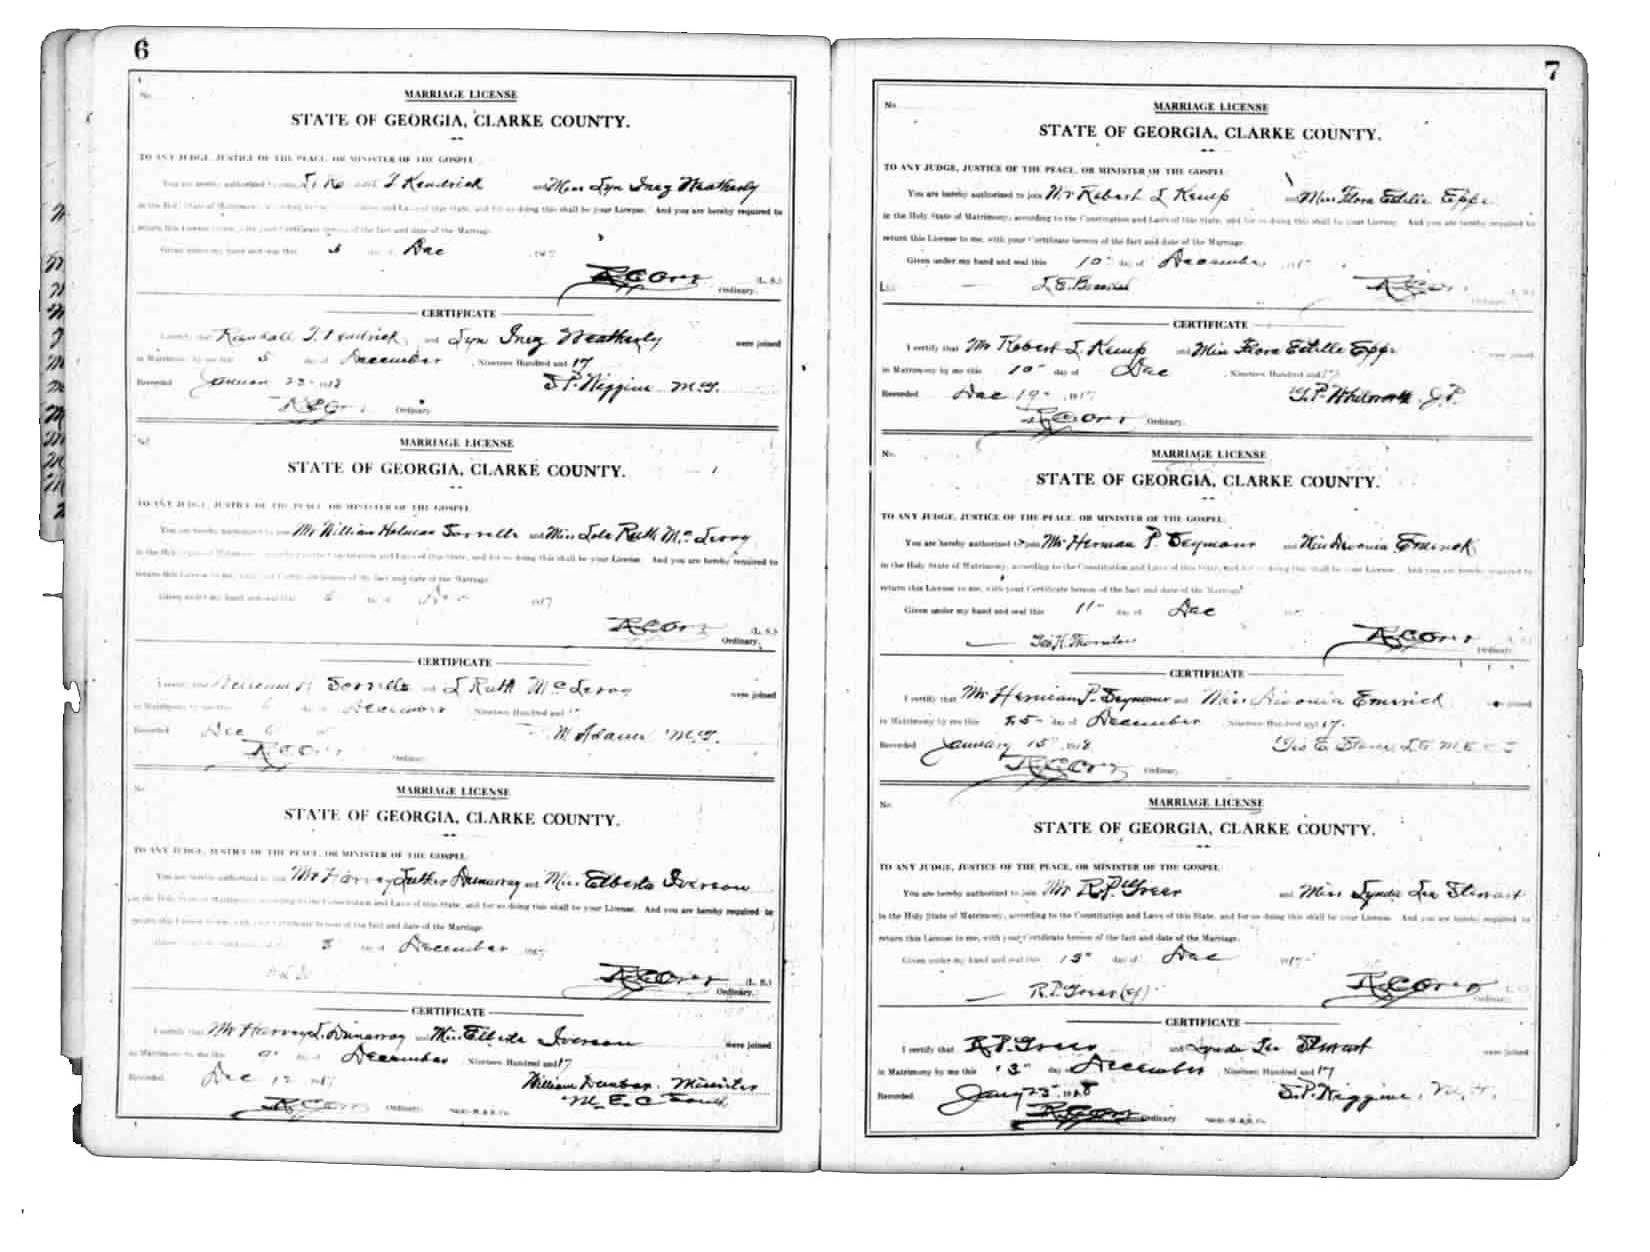 6
No.
MARRIAGE LICENSE
STATE OF GEORGIA, CLARKE COUNTY.
TO ANY JUDGE, JUSTICE OF THE PEACE, OR MINISTER OF THE GOSPEL
You are hereby authorized to join T Kendrick and Miss Lyn Inez Weatherly
in the Holy State of Matrimony, according to the Constitution and Laws of this State, and for so doing this shall be your License. And you are hereby required to
return this License to me, with your Certificate hereon of the fact and date of the Marriage.
Given under my hand and seal this 5 day of Dec 1917
R C Orr (L. S.)
Ordinary.
CERTIFICATE
I certify that Randall T. Kendrick and Lyn Inez Weatherly were joined
in Matrimony by me this 5 day of December, Nineteen Hundred and 17
Recorded January 23 1918 S. P. Wiggins M. G.
R C Orr Ordinary
No.
MARRIAGE LICENSE
STATE OF GEORGIA, CLARKE COUNTY.
TO ANY JUDGE, JUSTICE OF THE PEACE, OR MINISTER OF THE GOSPEL
You are hereby authorized to join Mr William Holman Sorrells and Miss Lola Ruth McLeroy
in the Holy State of Matrimony, according to the Constitution and Laws of this State, and for so doing this shall be your License. And you are hereby required to
return this License to me, with your Certificate hereon of the fact and date of the Marriage.
Given under my hand and seal this 6 day of Dec 1917
R C Orr (L. S.)
Ordinary.
CERTIFICATE
I certify that H Sorrells and L Ruth McLeroy were joined
in Matrimony by me this 6 day of December, Nineteen Hundred and
Recorded Dec Adams M. G.
R C Orr Ordinary.
No.
MARRIAGE LICENSE
STATE OF GEORGIA, CLARKE COUNTY.
TO ANY JUDGE, JUSTICE OF THE PEACE, OR MINISTER OF THE GOSPEL
You are hereby authorized to join Mr Harvey Luther Dunarvay and Miss Elberta Iverson
in the Holy State of Matrimony, according to the Constitution and Laws of this State, and for so doing this shall be your License. And you are hereby required to
return this License to me, with your Certificate hereon of the fact and date of the Marriage.
Given under my hand and seal this 8 day of December 1917
R C Orr (L. S.)
Ordinary.
CERTIFICATE
I certify that Mr Harvey L. Dunarvay and Miss Elberta Iverson were joined
in Matrimony by me this day of December Nineteen Hundred and 17
Recorded Dec 12 1917 William Dunbar, Minister
M. E. C South
R C Orr Ordinary.
7
No.
MARRIAGE LICENSE
STATE OF GEORGIA, CLARKE COUNTY.
TO ANY JUDGE, JUSTICE OF THE PEACE, OR MINISTER OF THE GOSPEL:
You are hereby authorized to join Mr Robert L Kemp and Miss Flora Estelle Epps
in the Holy State of Matrimony, according to the Constitution and Laws of this State, and for so doing this shall be your License. And you are hereby required to
return this License to me, with your Certificate hereon of the fact and date of the Marriage.
Given under my hand and seal this 10 day of December
R C Orr (L. S.)
Ordinary.
CERTIFICATE
I certify that Mr Robert L. Kemp and Miss Flora Estelle Epps were joined
in Matrimony by me this 10 day of Dec, Nineteen Hundred and 17
Recorded Dec 19 1917 T. P. Whitworth, J. P.
R C Orr Ordinary.
No.
MARRIAGE LICENSE
STATE OF GEORGIA, CLARKE COUNTY.
TO ANY JUDGE, JUSTICE OF THE PEACE, OR MINISTER OF THE GOSPEL:
You are hereby authorized to join Mr Herman P. Seymour and Miss Livonia Emerick
in the Holy State of Matrimony, according to the Constitution and Laws of this State, and for so doing this shall be your License. And you are hereby required to
return this License to me, with your Certificate hereon of the fact and date of the Marriage.
Given under my hand and seal this 11 day of Dec
Geo H. Thornton R C Orr
Ordinary.
CERTIFICATE
I certify that Mr Herman P. Seymour and Miss Livonia Emerick were joined
in Matrimony by me this day of December, Nineteen Hundred and 17.
Recorded January 15 1918
R C Orr Ordinary.
No.
MARRIAGE LICENSE
STATE OF GEORGIA, CLARKE COUNTY.
TO ANY JUDGE, JUSTICE OF THE PEACE, OR MINISTER OF THE GOSPEL:
You are hereby authorized to join Mr R. P. Greer and Miss Lynda Lee Stewart
in the Holy State of Matrimony, according to the Constitution and Laws of this State, and for so doing this shall be your License. And you are hereby required to
return this License to me, with your Certificate hereon of the fact and date of the Marriage.
Given under my hand and seal this 13 day of Dec 1917
R. P. Greer R C Orr
Ordinary.
CERTIFICATE
I certify that R. P. Greer and Lynda Lee Stewart were joined
in Matrimony by me this 13 day of December, Nineteen Hundred and 17
Recorded Jany 23 1918 S. P. Wiggins, M. G.
R C Orr Ordinary